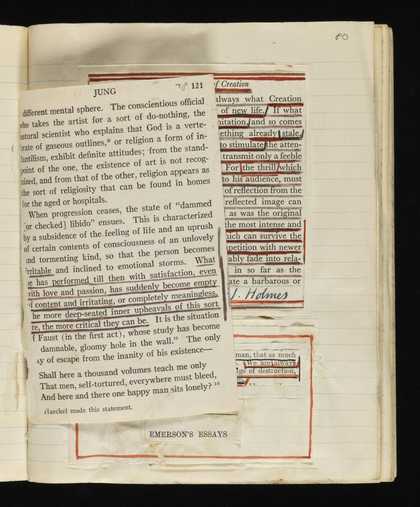 80
JUNG 121
different mental sphere. The conscientious official
who takes the artist for a sort of do-nothing, the
natural scientist who explains that God is a verte-
brate of gaseous outlines,* or religion a form of in-
fantilism, exhibit definite attitudes; from the stand-
point of the one, the existence of art is not recog-
nized, and from that of the other, religion appears as
the sort of religiosity that can be found in homes
for the aged or hospitals.
When progression ceases, the state of "dammed
[or checked] libido" ensues. This is characterized
by a subsidence of the feeling of life and an uprush
of certain contents of consciousness of an unlovely
and tormenting kind, so that the person becomes
irritable and inclined to emotional storms. What
he has performed till then with satisfaction, even
with love and passion, has suddenly become empty
of content and irritating, or completely meaningless.
The more deep-seated inner upheavals of this sort
are, the more critical they can be. It is the situation
of Faust (in the first act), whose study has become
damnable, gloomy hole in the wall." The only
way of escape from the inanity of his existence—
Shall here a thousand volumes teach me only
That men, self-tortured, everywhere must bleed,
And here and there one happy man sits lonely?
Haeckel made this statement.
of Creation
always what Creation
of new life. If what
mitation, and so comes
ething already stale,
to stimulate the atten-
transmit only a feeble
For the thrill which
to his audience, must
of reflection from the
reflected image can
as was the original
the most intense and
hich can survive the
petition with newer
ably fade into rela-
in so far as the
ute a barbarous or
J. Holmes
man, that as much
We are always
ge of destruction,
EMERSON'S ESSAYS